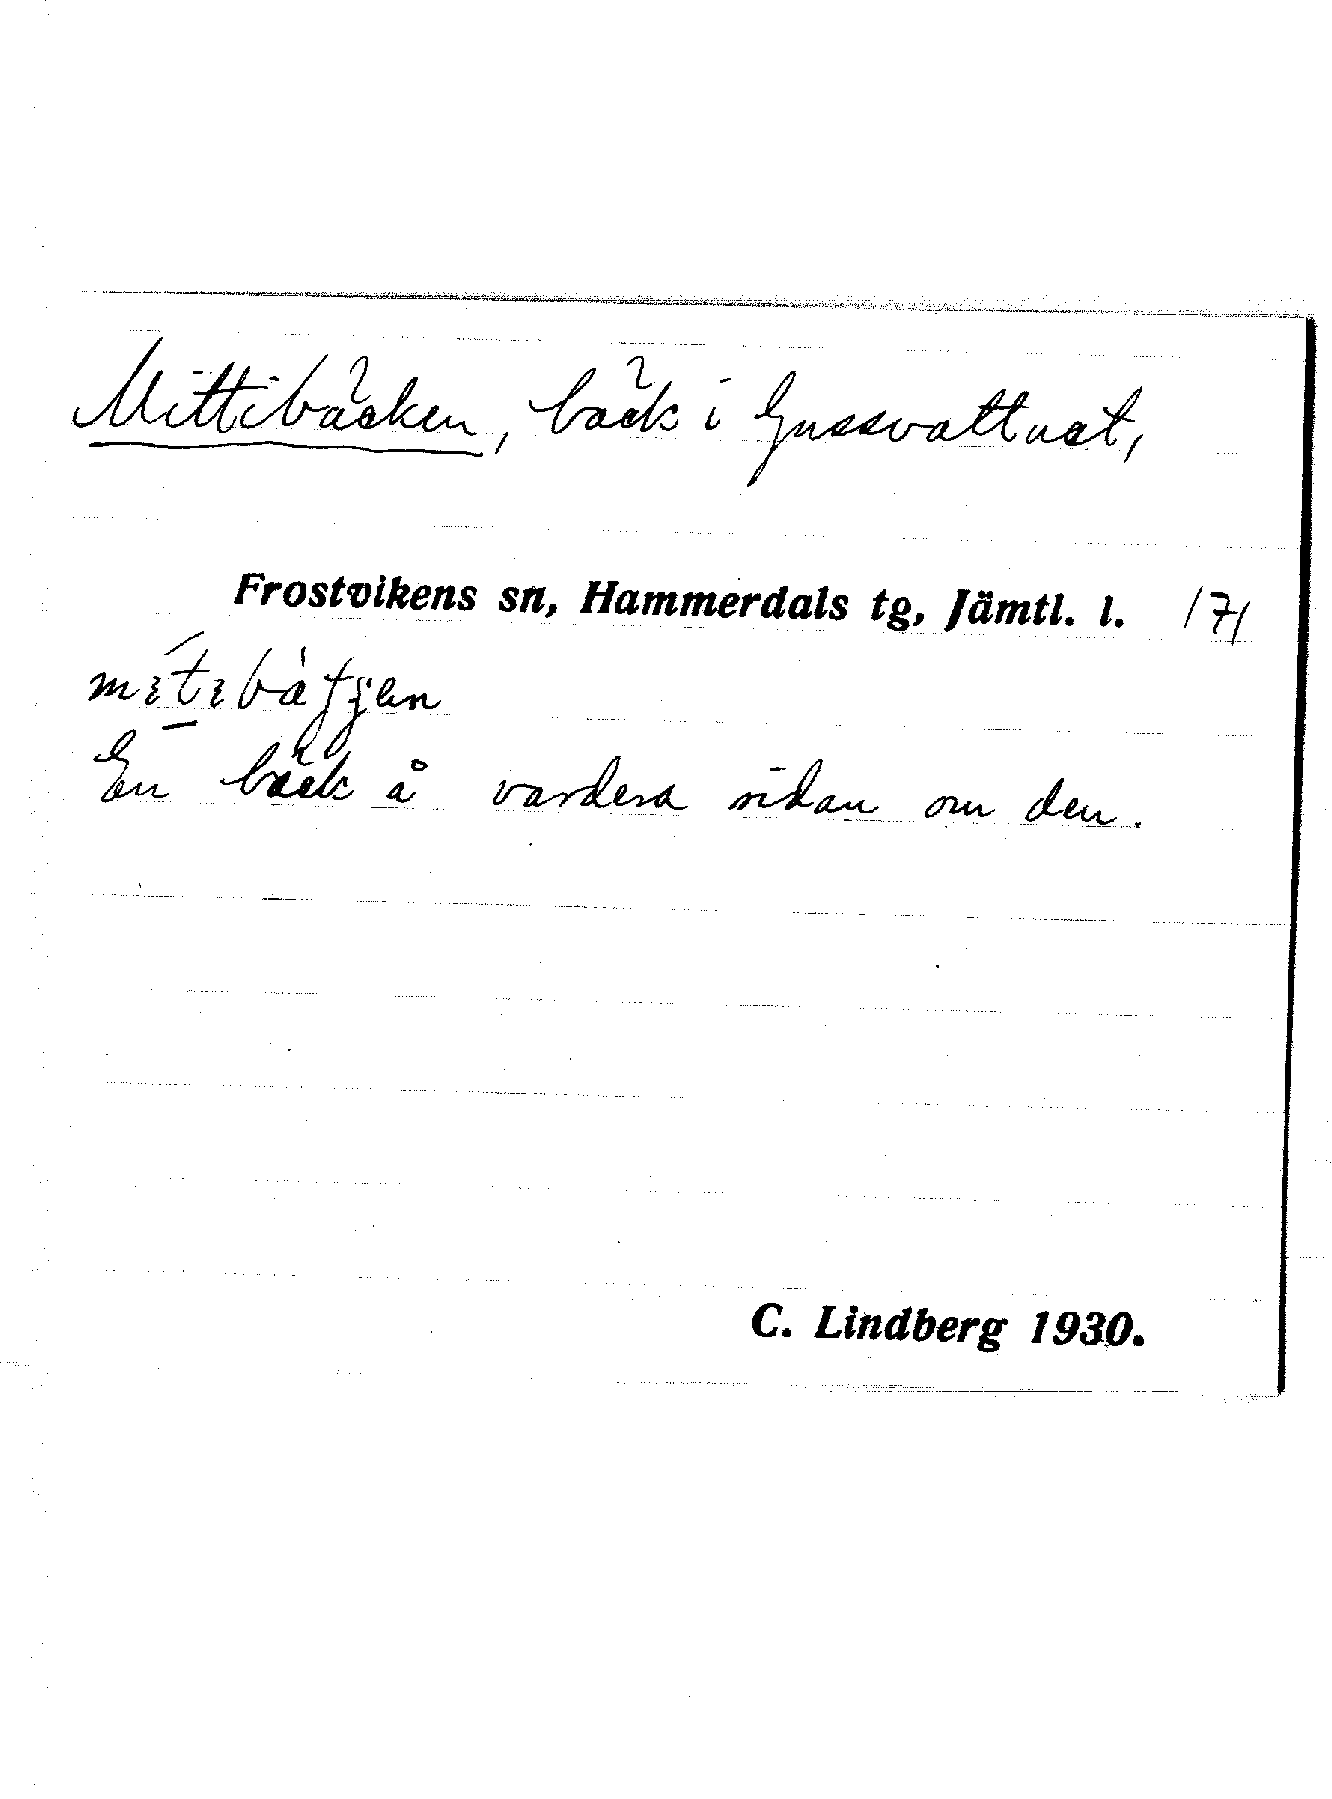 Mittibäcken, bäck i Gussvattnet,
Frostvikens sn, Hammerdals tg, Jämtl. l. 171
En bäck å vardera sidan om den.
C. Lindberg 1930.